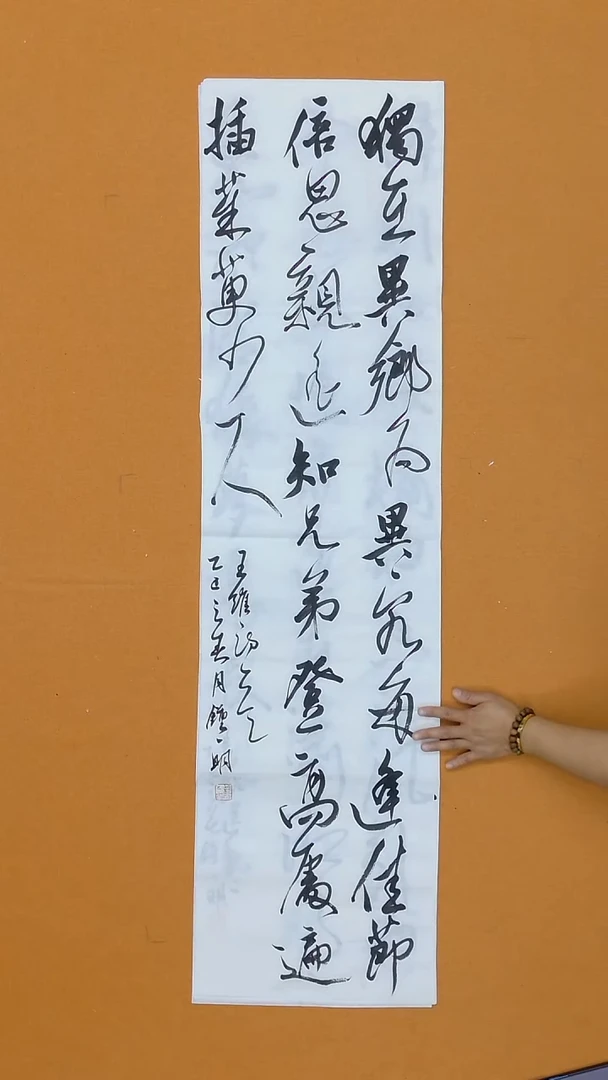 獨在異鄉為異客每逢佳節
倍思親遙知兄弟登高處遍
插茱萸少一人
王維詩
乙巳之春月鍾明